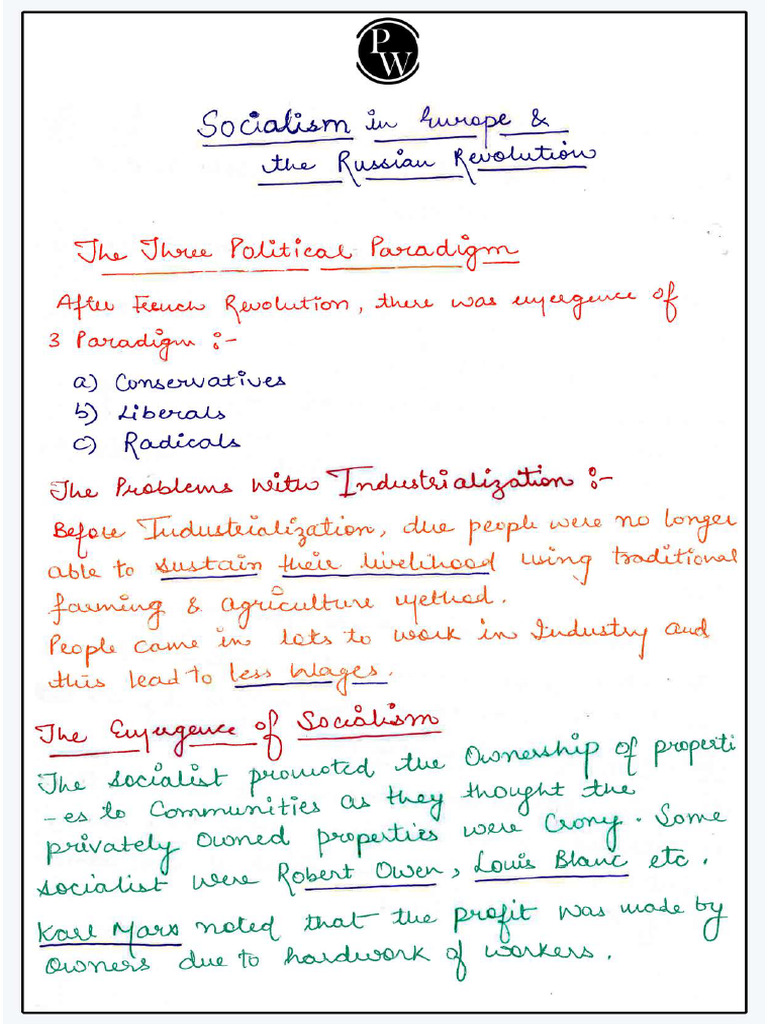 PW
Socialism in Europe &
the Russian Revolution
The Three Political Paradigm
After French Revolution, there was emergence of
3 Paradigm :-
a) Conservatives
b) Liberals
c) Radicals
The Problems with Industrialization :-
Before Industrialization, due people were no longer
able to sustain their livelihood using traditional
farming & agriculture method.
People came in lots to work in Industry and
this lead to less Wages.
The Emergence of Socialism
The socialist promoted the Ownership of properti
-es to Communities as they thought the
privately owned properties were Crony. Some
socialist were Robert Owen, Louis Blanc etc.
Karl Marx noted that the profit was made by
owners due to hardwork of workers.